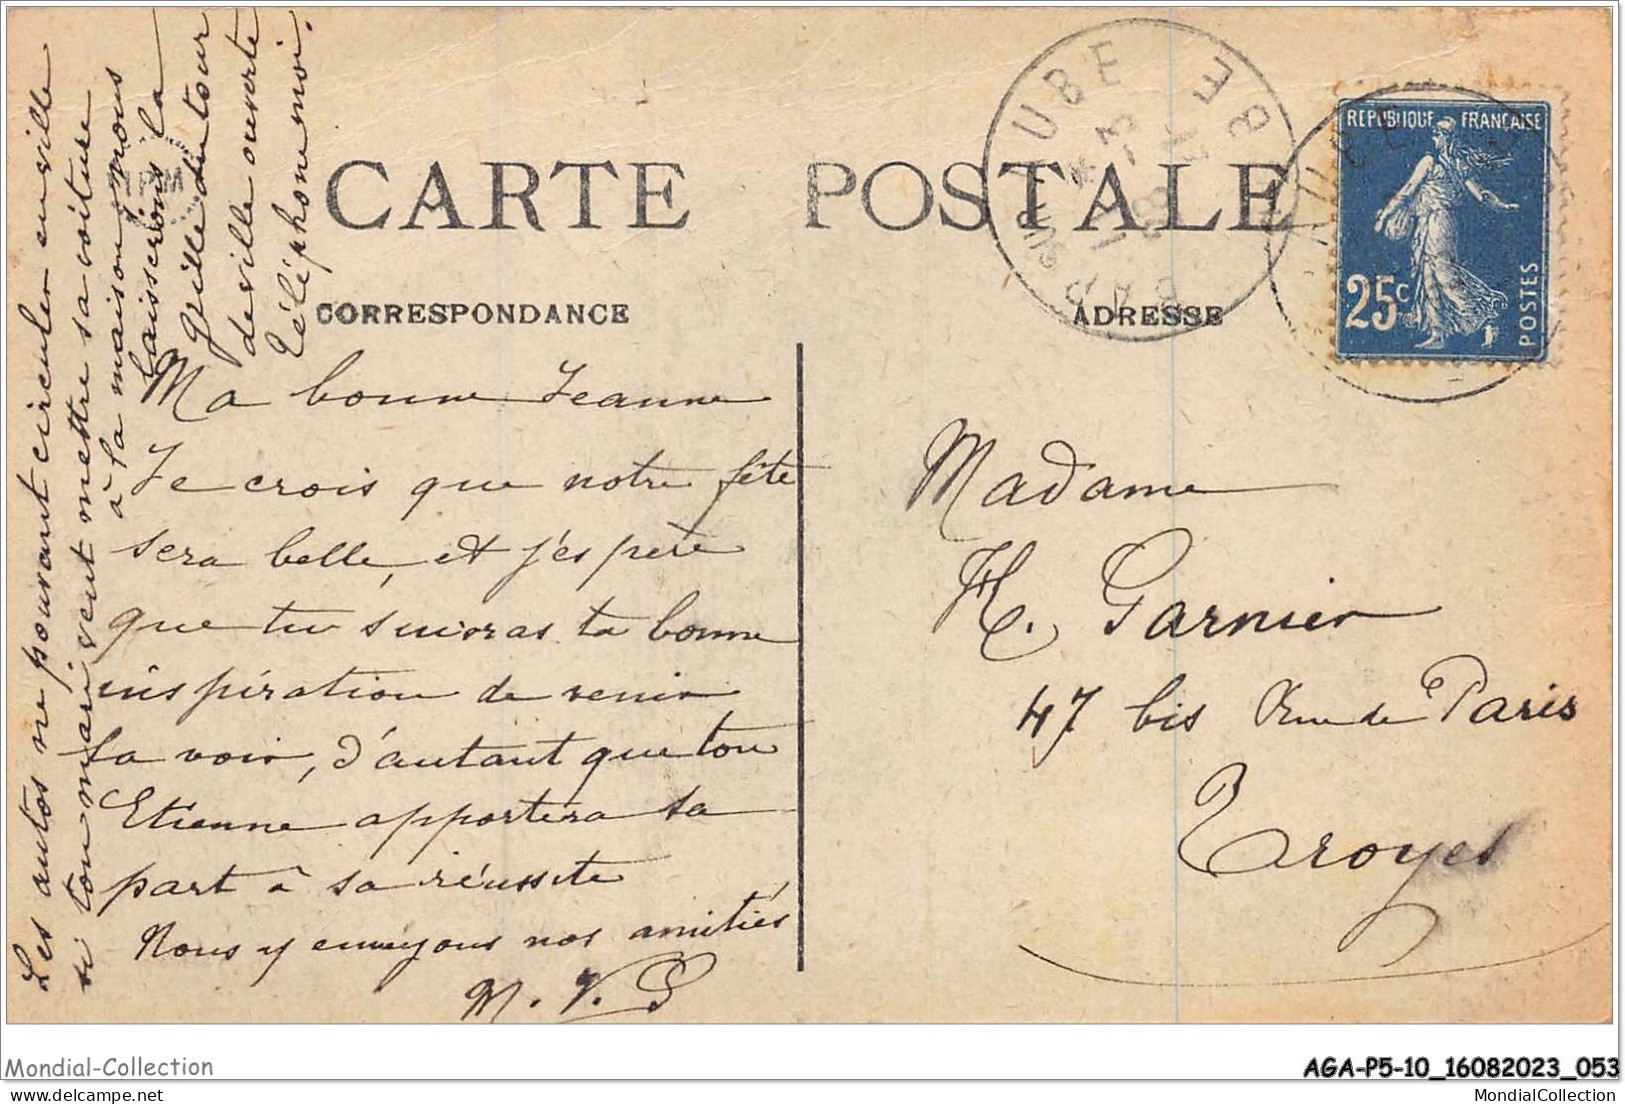 CARTE POSTALE
CORRESPONDANCE
ADRESSE
REPUBLIQUE FRANÇAISE
25c
POSTES
Ma bonne Jeanne
Je crois que notre fête
sera belle, et j'espère
que tu suivras ta bonne
inspiration de venir
la voir, d'autant que ton
Etienne apportera sa
part à sa réussite
Nous y envoyons nos amitiés
M. V. S
Les autos ne pouvant circuler en ville
si ton mari veut mettre sa voiture
à la maison, nous
laisserons la
grille du tour
de ville ouverte
Téléphone moi.
Madame
H. Garnier
47 bis Rue de Paris
Troyes
Mondial-Collection
AGA-P5-10_16082023_053
MondialCollection